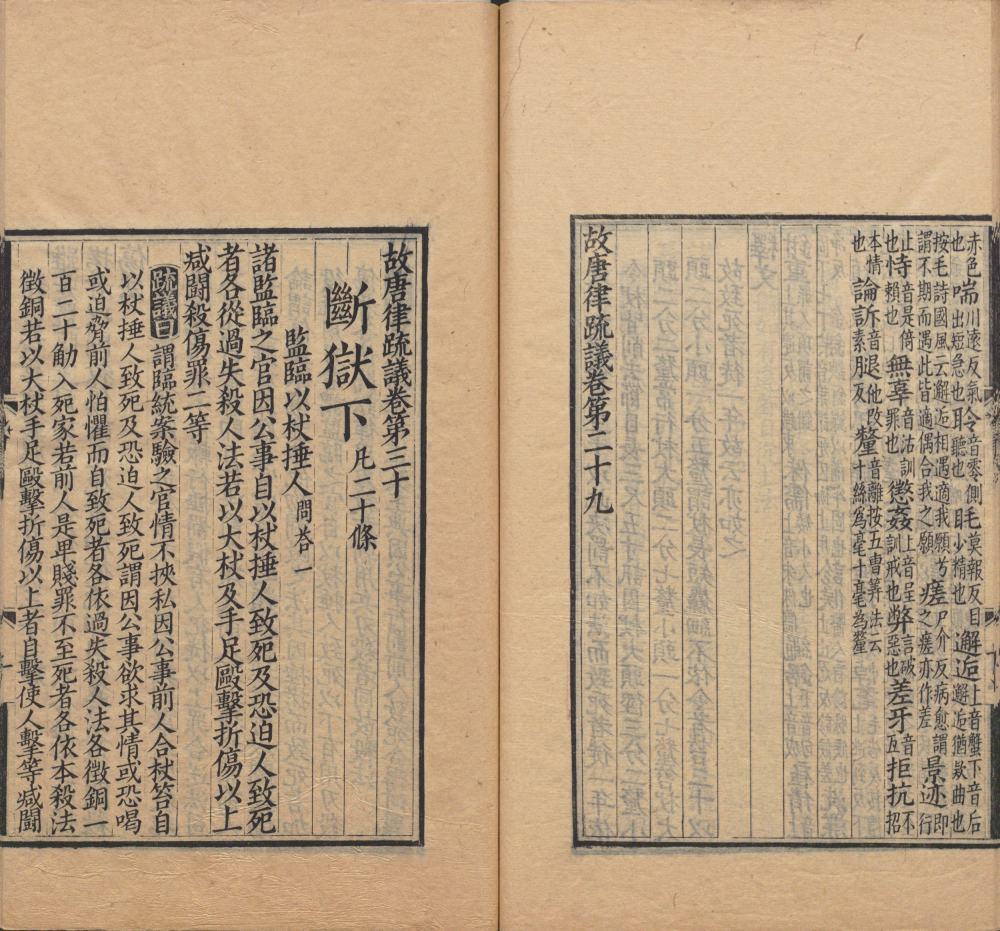 赤色也 喘川遠反氣出短急也 聆音零側聽也 眊莫報反目少精也 邂逅上音蟹下音后邂逅猶歎曲也
按毛詩國風云邂逅相遇適我願兮謂不期而遇此皆適偶合我之願 瘥尸介反病愈謂之瘥亦作差 景迹即行
止也 恃音是倚賴也 無辜音沽訓罪也 懲姦上音呈訓戒也 弊言破惡也 差牙音五 拒抗不招
本情也 論訴音素 腿他改反 釐音離按五曹筭法云十絲為毫十毫為釐
故唐律疏議卷第二十九
故唐律疏議卷第三十
斷獄下 凡二十條
監臨以杖捶人 問荅一
諸監臨之官因公事自以杖捶人致死及恐迫人致死
者各從過失殺人法若以大杖及手足毆擊折傷以上
减鬬殺傷罪二等
疏議曰謂臨統案驗之官情不挾私因公事前人合杖笞自
以杖捶人致死及恐迫人致死謂因公事欲求其情或恐喝
或迫脅前人怕懼而自致死者各依過失殺人法各徵銅一
百二十觔入死家若前人是卑賤罪不至死者各依本殺法
徵銅若以大杖手足毆擊折傷以上者自擊使人擊等减鬬